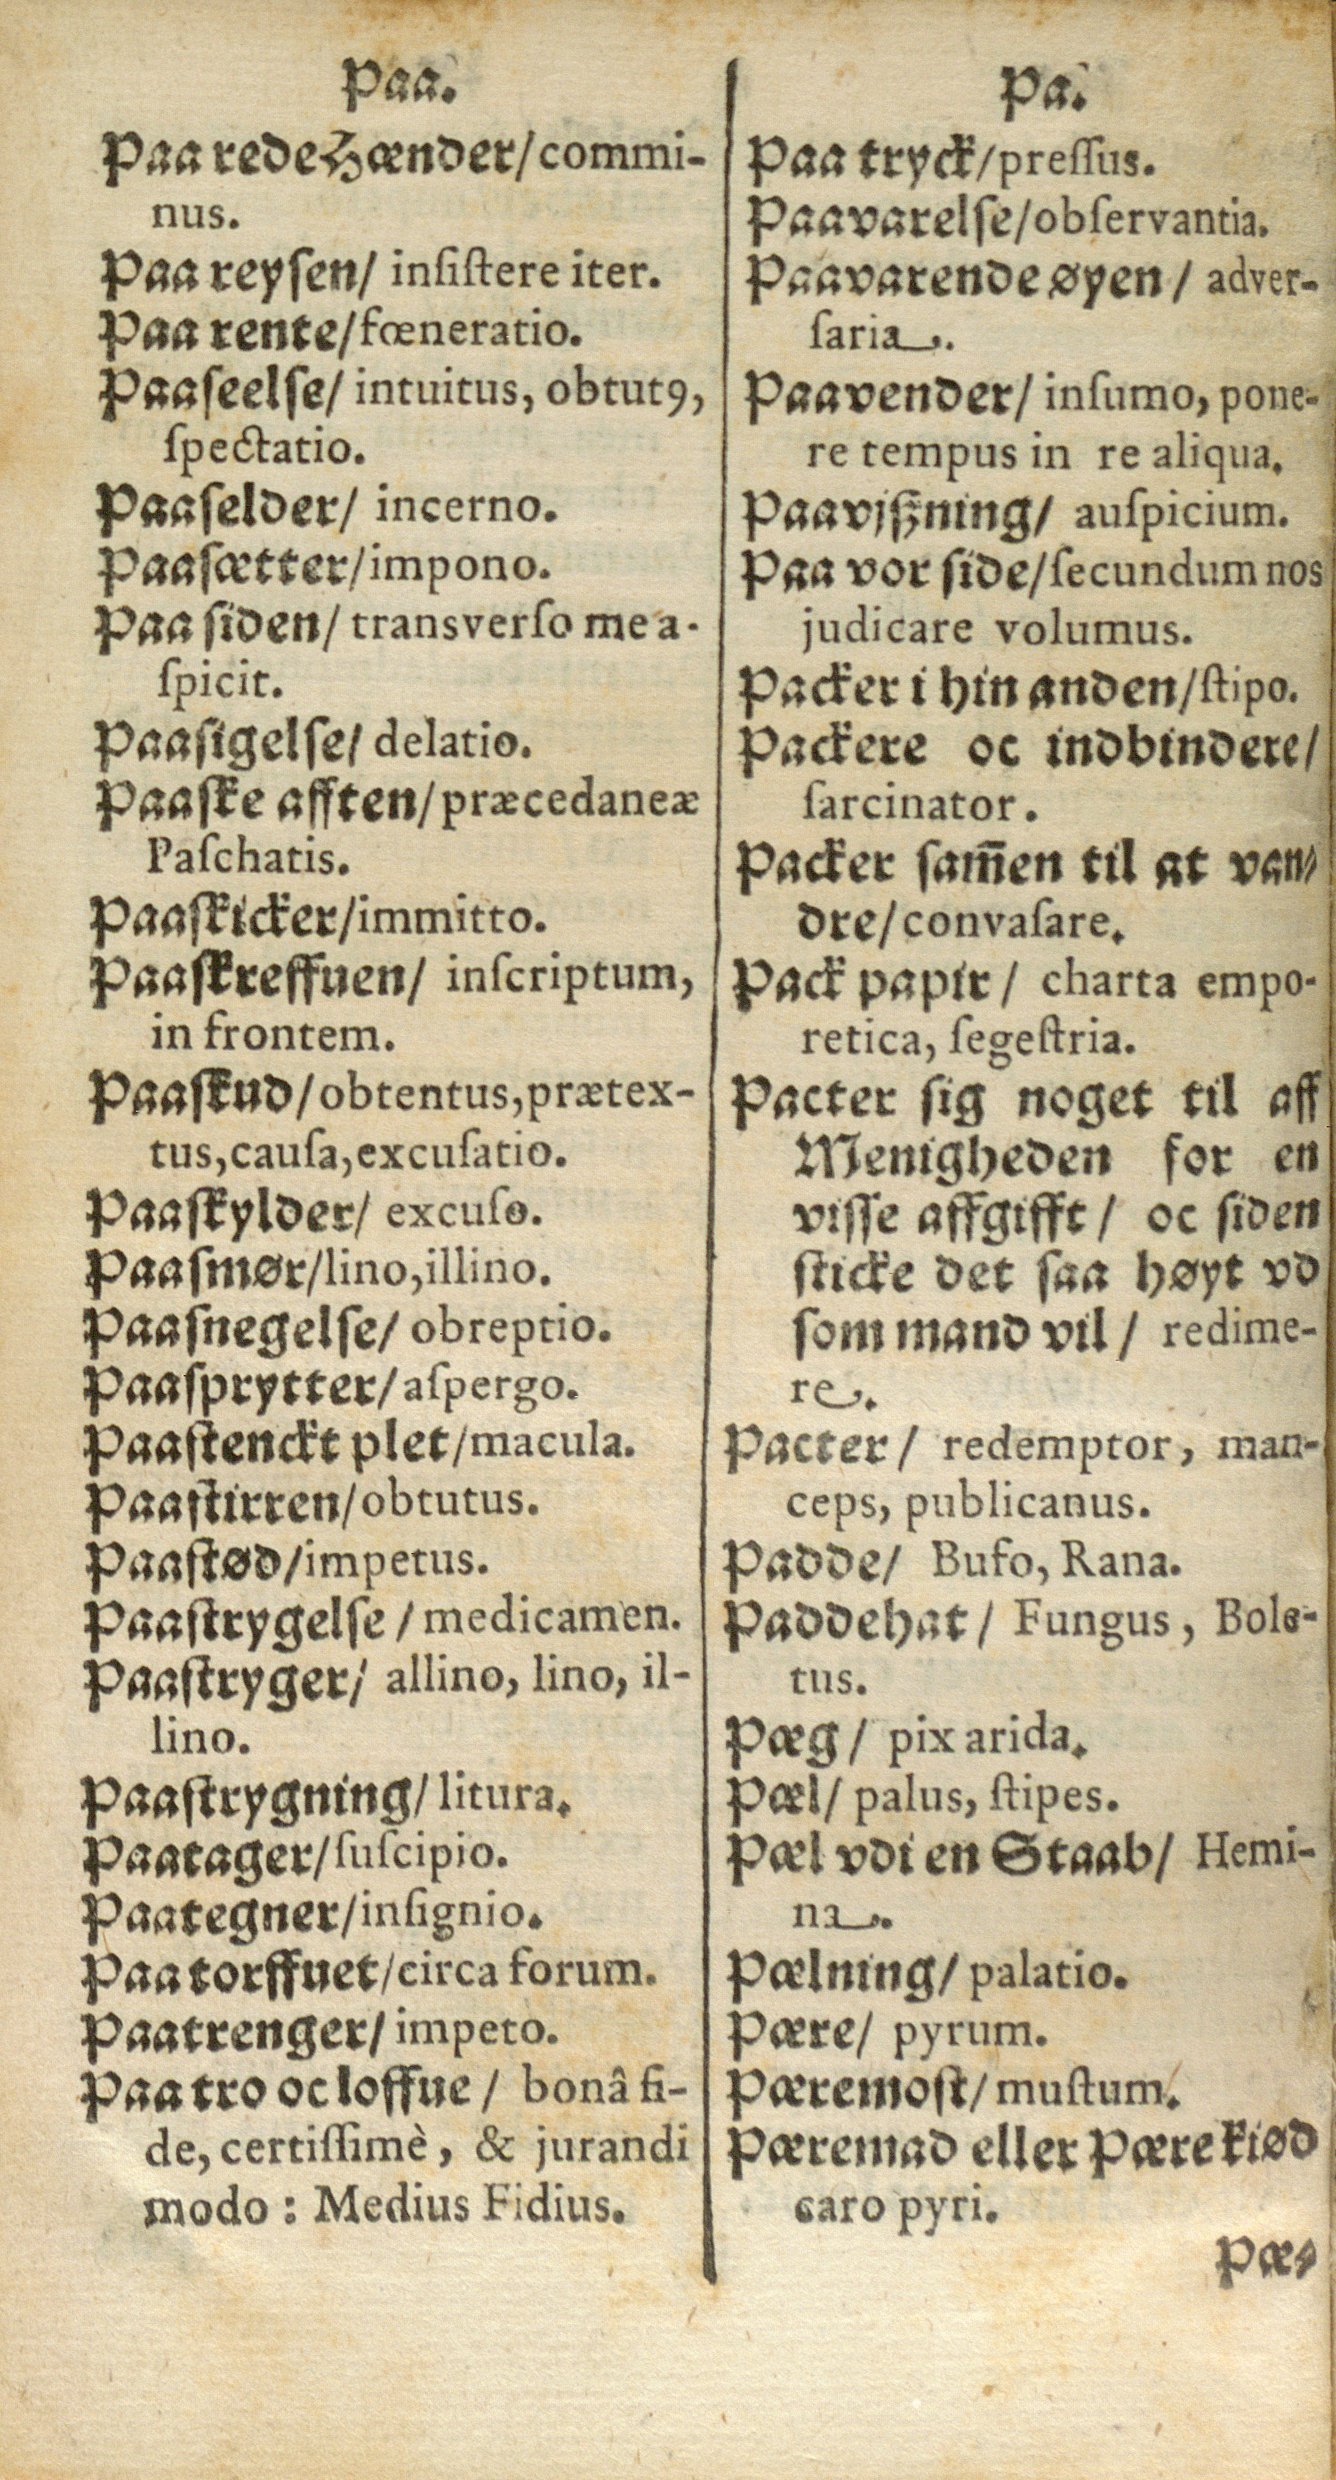 Paa.
Paa rede Hænder/ commi-
nus.
Paa reysen/ inſiſtere iter.
Paa rente/ fœneratio.
Paaſeelſe/ intuitus, obtutꝰ,
ſpectatio.
Paaſelder/ incerno.
Paaſætter/ impono.
Paa ſiden/ transverſo me a-
ſpicit.
Paaſigelſe/ delatio.
Paaſke afften/ præcedaneæ
Paſchatis.
Paaſkicker/ immitto.
Paaſkreffuen/ inſcriptum,
in frontem.
Paaſkud/ obtentus, prætex-
tus, cauſa, excuſatio.
Paaſkylder/ excuſo.
Paaſmør/ lino, illino.
Paaſnegelſe/ obreptio.
Paaſprytter/ aſpergo.
Paaſtenckt plet/ macula.
Paaſtirren/ obtutus.
Paaſtød/ impetus.
Paaſtrygelſe/ medicamen.
Paaſtryger/ allino, lino, il-
lino.
Paaſtrygning/ litura.
Paatager/ ſuſcipio.
Paategner/ inſignio.
Paa torffuet/ circa forum.
Paatrenger/ impeto.
Paa tro oc loffue/ bonâ fi-
de, certiſſimè, & jurandi
modo: Medius Fidius.
Pa.
Paa tryck/ preſſus.
Paavarelſe/ obſervantia.
Paavarende øyen/ adver-
ſaria.
Paavender/ inſumo, pone-
re tempus in re aliqua.
Paavjſzning/ auſpicium.
Paa vor ſide/ ſecundum nos
judicare volumus.
Packer i hin anden/ ſtipo.
Packere oc indbindere/
ſarcinator.
Packer ſam̄en til at van-
dre/ convaſare.
Pack papir/ charta empo-
retica, ſegeſtria.
Pacter ſig noget til aff
Menigheden for en
viſſe affgifft/ oc ſiden
ſticke det ſaa høyt vd
ſom mand vil/ redime-
re.
Pacter/ redemptor, man-
ceps, publicanus.
Padde/ Bufo, Rana.
Paddehat/ Fungus, Bole-
tus.
Pæg/ pix arida.
Pæl/ palus, ſtipes.
Pæl vdi en Staab/ Hemi-
na.
Pælning/ palatio.
Pære/ pyrum.
Pæremoſt/ muſtum.
Pæremad eller Pære kiød
caro pyri.
Pæ-